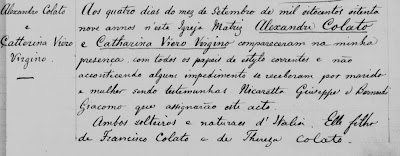 Alexandre Colato
e
Catterina Viero
Virgino.
Aos quatro dias do mez de Setembro de mil oitocentos oitenta
nove annos n'esta Igreja Matriz Alexandre Colato
e Catharina Viero Virgino compareceram na minha
presença com todos os papeis de estylo correntes e não
acontecendo algum impedimento se receberam por marido
e mulher sendo testemunhas Nicaretta Giuseppe e Bernardi
Giacomo que assignarão este acto.
Ambos solteiros e naturaes d'Italia. Elle filho
de Francisco Colato e de Thereza Colato.